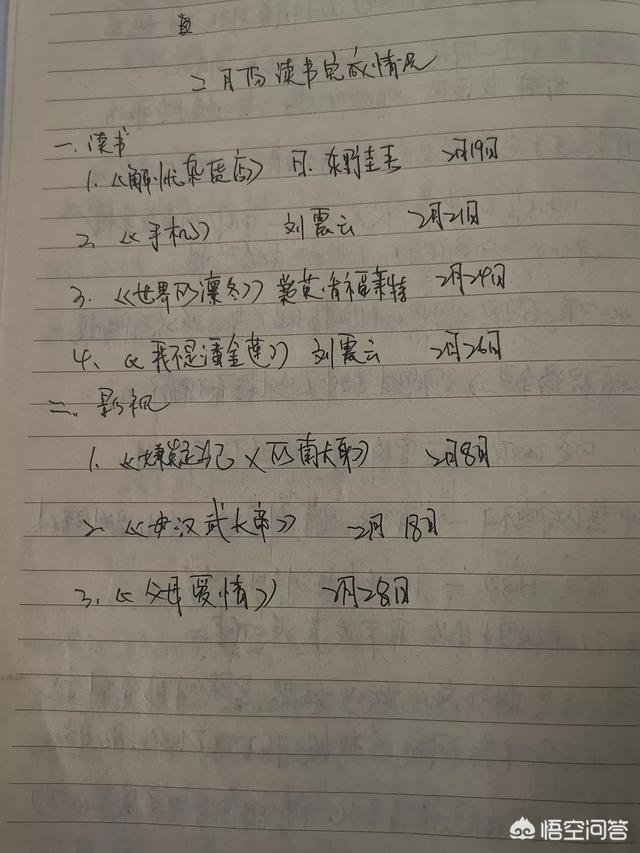 二月的读书完成情况
一、读书
1.《解忧杂货店》 日.东野圭吾 2月19日
2、《手机》 刘震云 2月21日
3.《世界的凛冬》 英·肯福莱特 2月24日
4、《我不是潘金莲》 刘震云 2月26日
二、影视
1.《嫌疑犯X的献身》 2月8日
2.《汉武大帝》 2月18日
3、《父母爱情》 2月28日
悟空问答